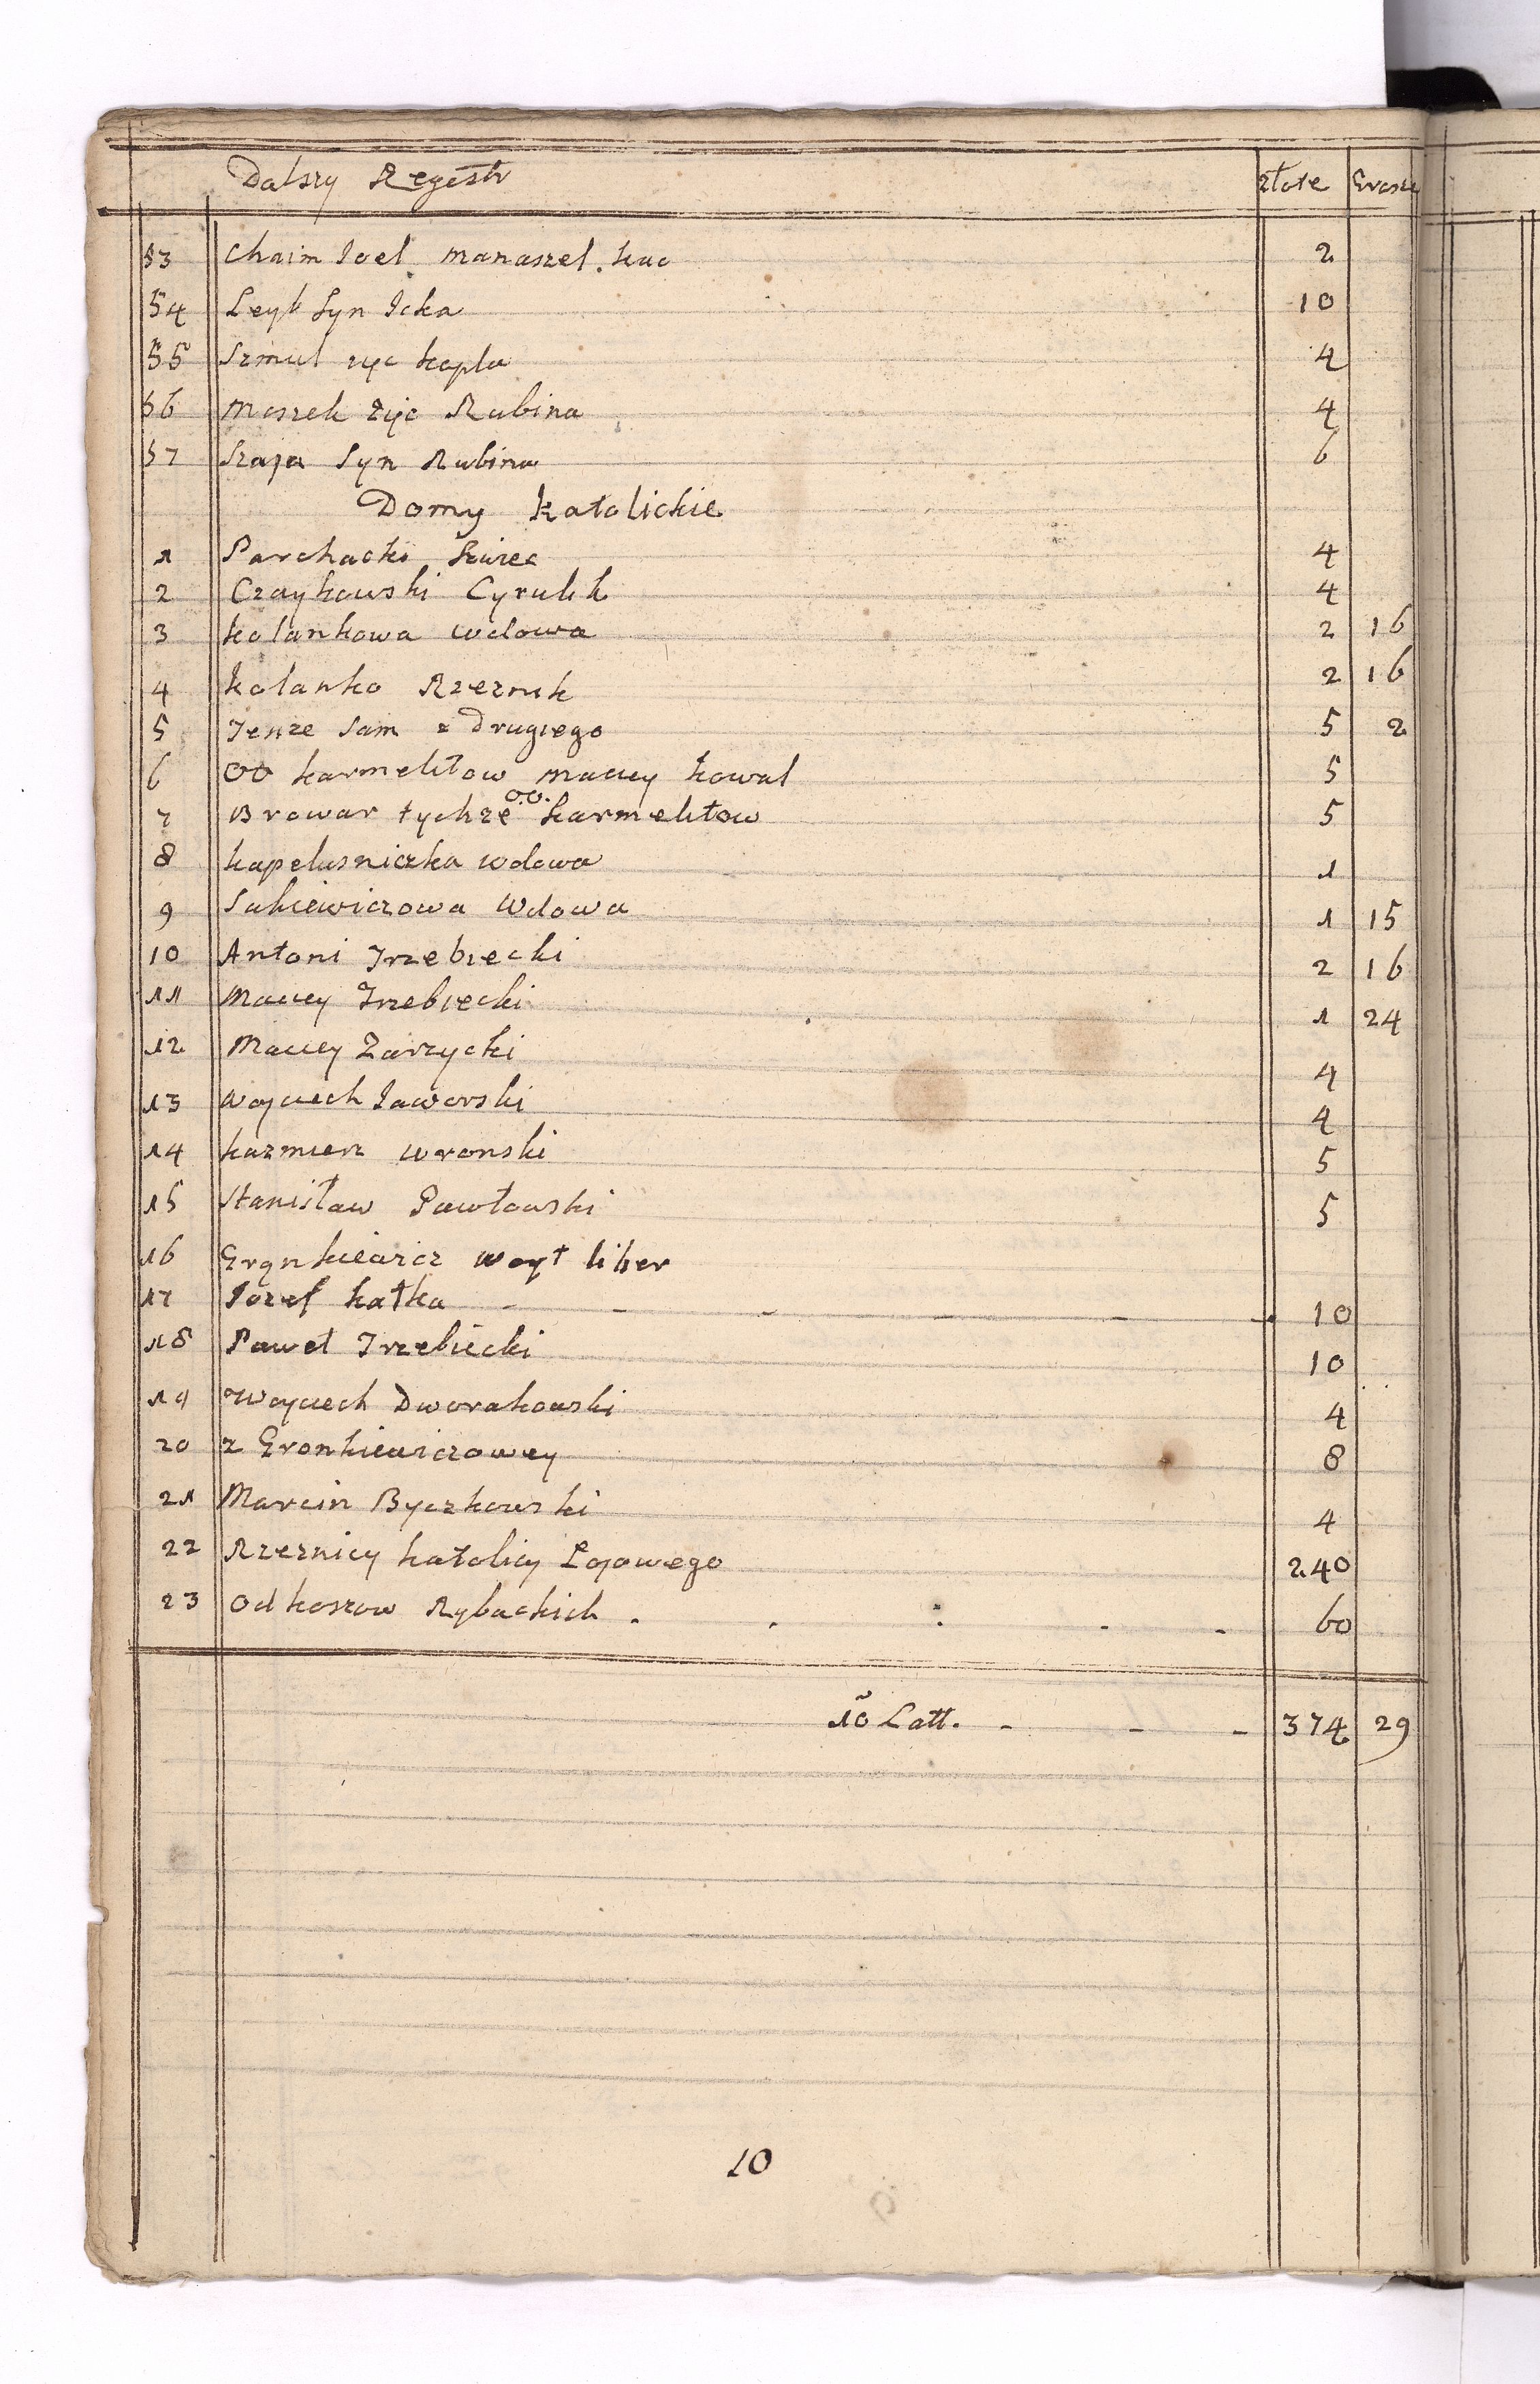 Dalszy Regestr złote Grosze
53 Chaim Joel Manaszel. kac 2
54 Leyb Syn Icka 10
55 Szmul zyc kopla 4
56 Moszek zyc Rubina 4
57 Szaja Syn Rubina 6
Domy katolickie
1 Parchacki Szwiec 4
2 Czaykowski Cyrulik 4
3 kolankowa wdowa 2 16
4 kolanko Rzeznik 2 16
5 Tenze Sam z Drugiego 5 2
6 OO karmelitow Maciey kowal 5
7 Browar tychze OO. karmelitow 5
8 kapelusniczka wdowa 1
9 Sakiewiczowa Wdowa 1 15
10 Antoni Trzebiecki 2 16
11 Maciey Trzebiecki 1 24
12 Maciey Zarzycki 4
13 Woyciech Jaworski 4
14 kazmierz wronski 5
15 Stanisław Pawłowski 5
16 Grynkiewicz woyt liber
17 Jozef kałka - - - - 10
18 Paweł Trzebiecki 10
19 Woyciech Dworakowski 4
20 z Gronkiewiczowey 8
21 Marcin Byczkowski 4
22 Rzeznicy katolicy Łojowego 240
23 Od koszow Rybackich . . : - - 60
Latt. - - - 374 29
10